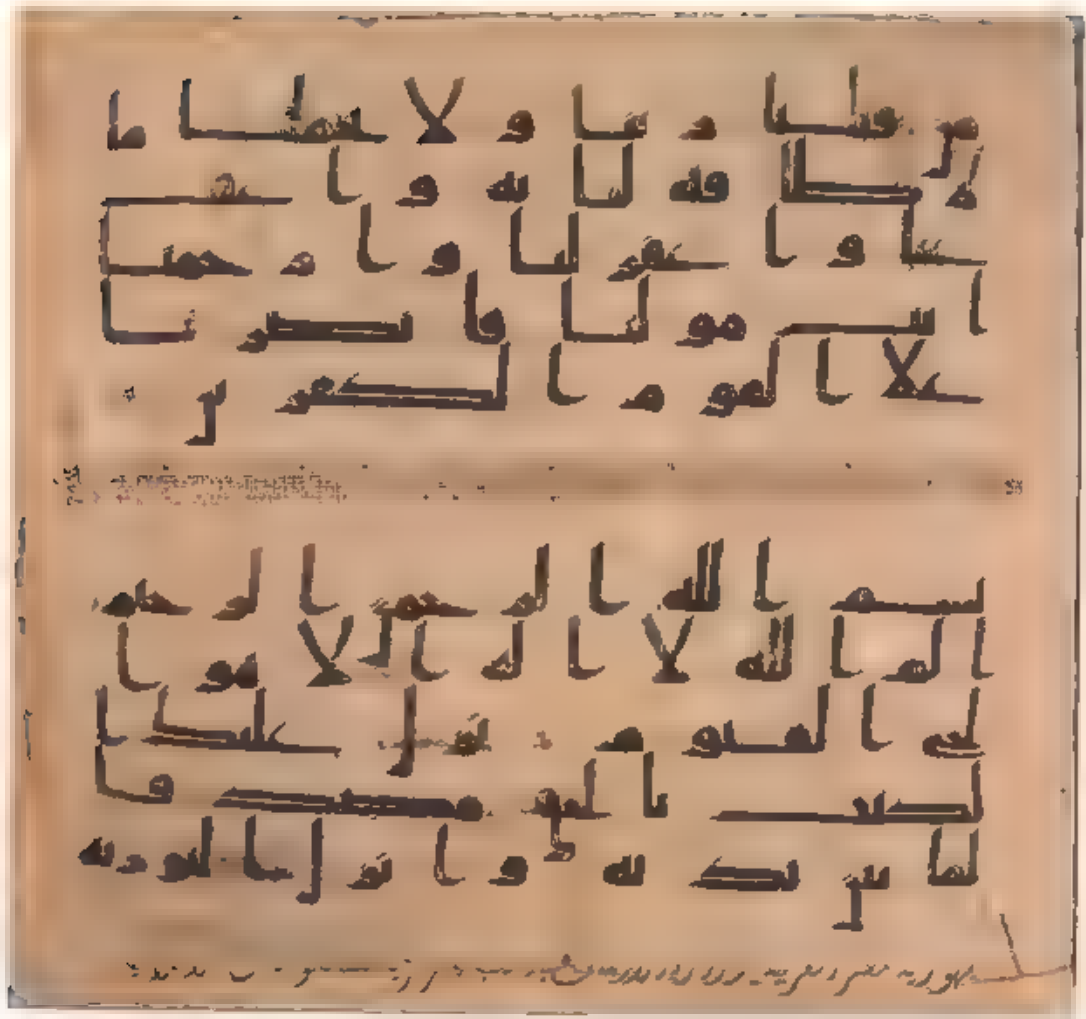 من قبلنا ربنا ولا تحملنا ما
لا طاقة لنا به واعف
عنا واغفر لنا وارحمنا
انت مولنا فانصرنا
على القوم الكفرين
بسم الله الرحمن الرحيم
الم الله لا اله الا هو ا
لحي القيوم نزل عليك ا
لكتب بالحق مصدقا
لما بين يديه وانزل التورية